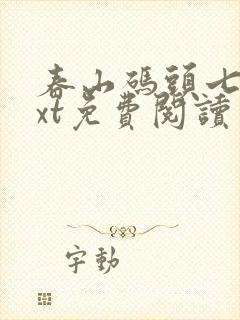 春山碼頭七
xt免費閱讀
字動